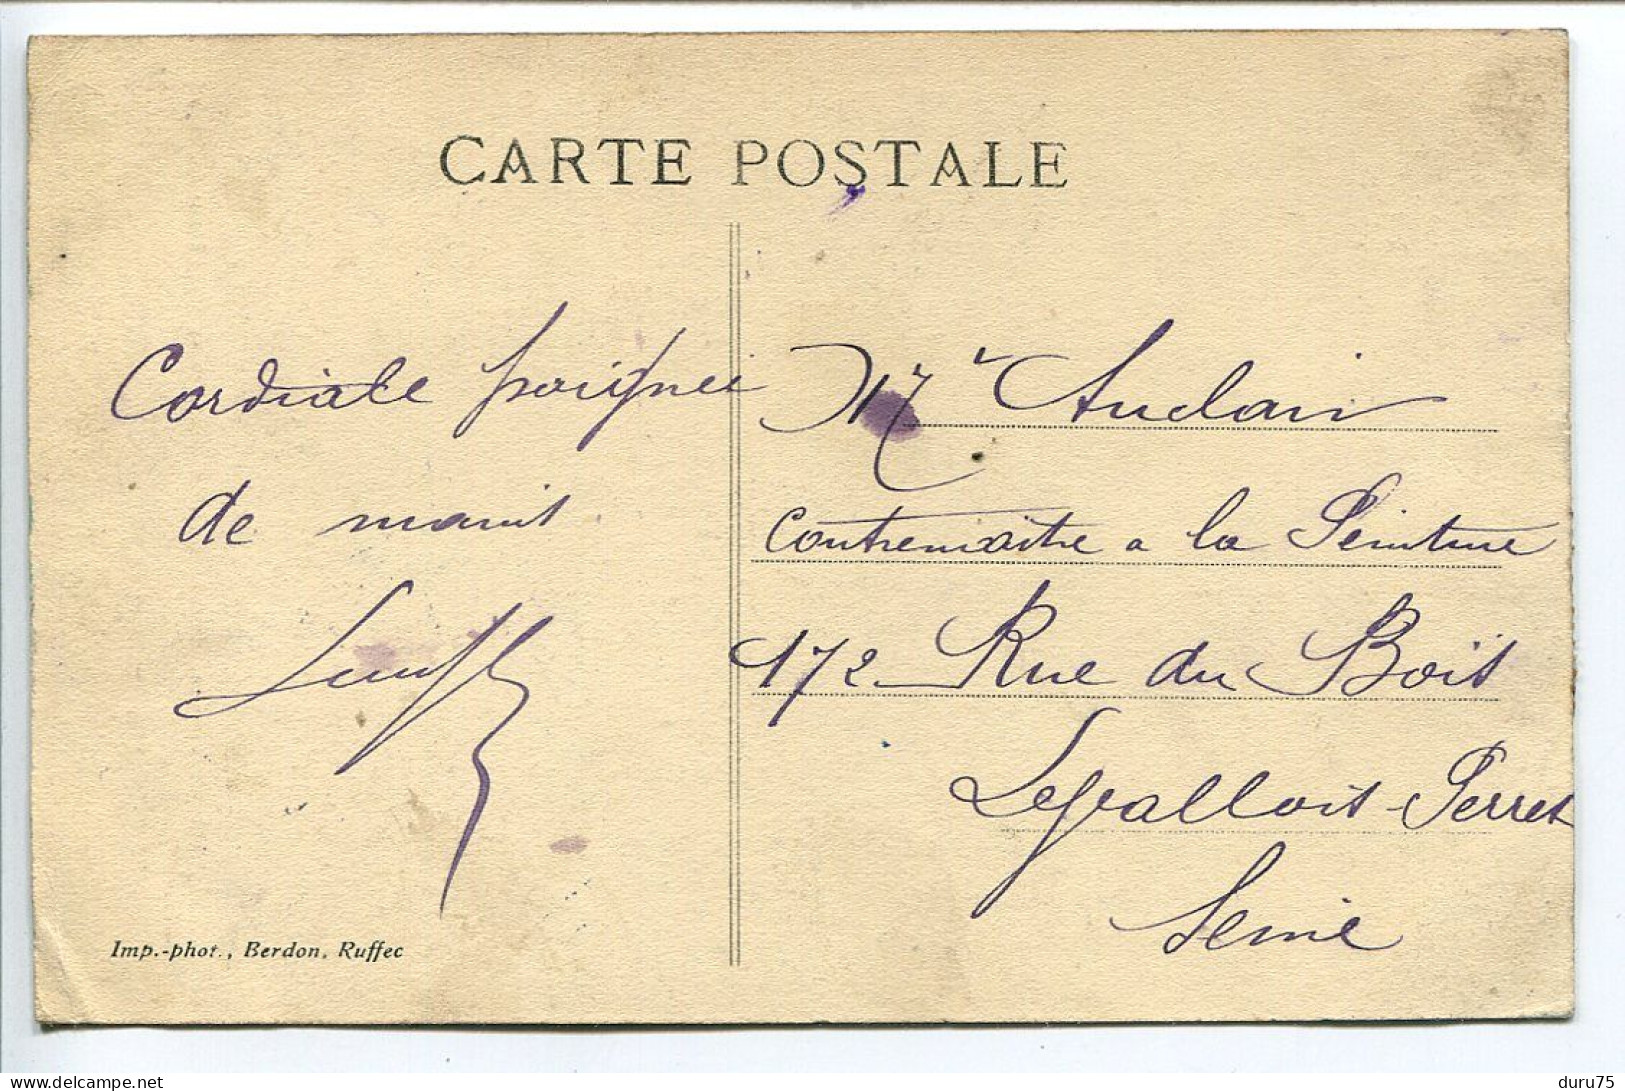 CARTE POSTALE
Cordiale poignée
de mains
Mr Audoin
Contremaitre a la Peinture
172 Rue du Bois
Levallois-Perret
Seine
Imp.-phot., Berdon, Ruffec
delcampe.net
duru75